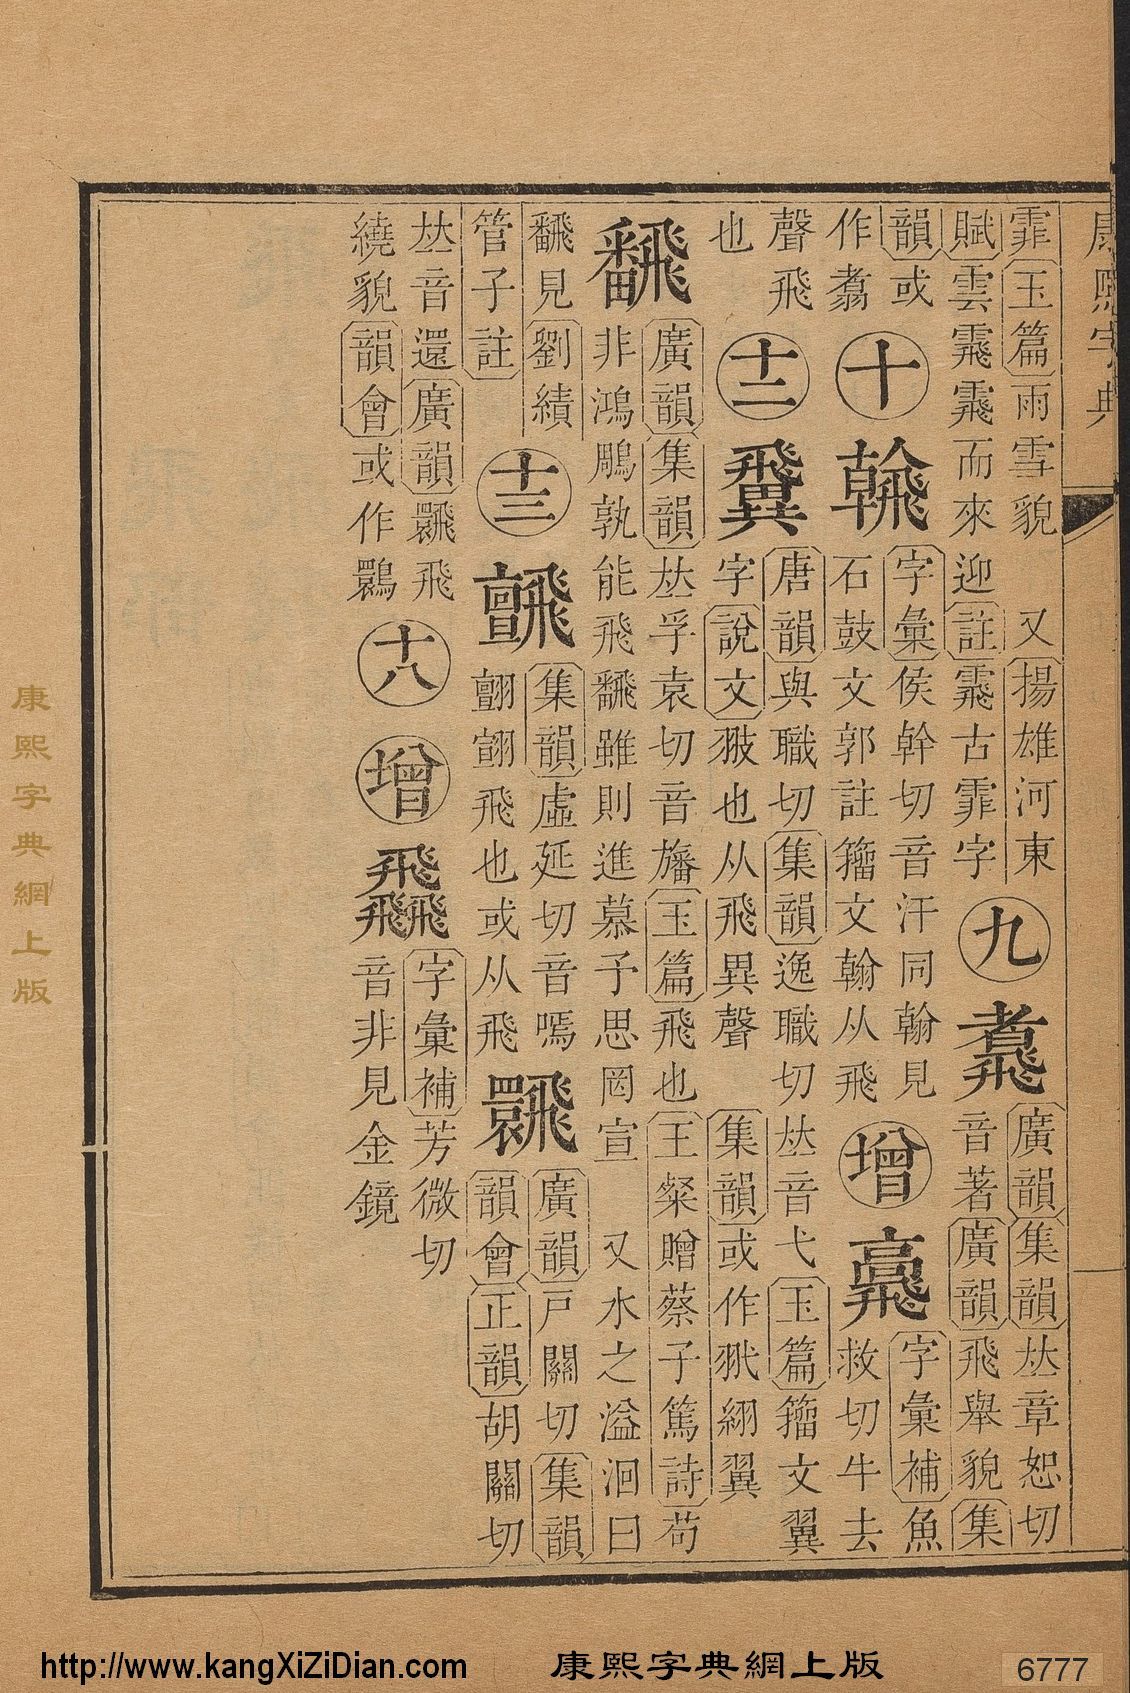 康熙字典
霏玉篇雨雪貌 又揚雄河東
賦雲䨾䨾而來迎註䨾古霏字
九
䬡
廣韻集韻𠀤章恕切
音著廣韻飛舉貌集
韻或
作翥
十
字彙侯幹切音汗同翰見
石鼓文郭註籒文翰从飛
增
字彙補魚
救切牛去
聲飛
也
十二
𩙺
唐韻與職切集韻逸職切𠀤音弋玉篇籒文翼
字說文翄也从飛異聲 集韻或作翼
飜
廣韻集韻𠀤孚袁切音旛玉篇飛也王粲贈蔡子篤詩苟
非鴻鵰孰能飛飜雖則進慕予思罔宣 又水之溢洄曰
飜見劉績
管子註
十三
集韻虛延切音嘕
飛也或从飛
廣韻戸關切集韻
韻會正韻胡關切
𠀤音還廣韻飛
繞貌韻會或作
十八
增
飝
字彙補芳微切
音非見金鏡
康熙字典網上版
http://www.kangXiZiDian.com 康熙字典網上版 6777